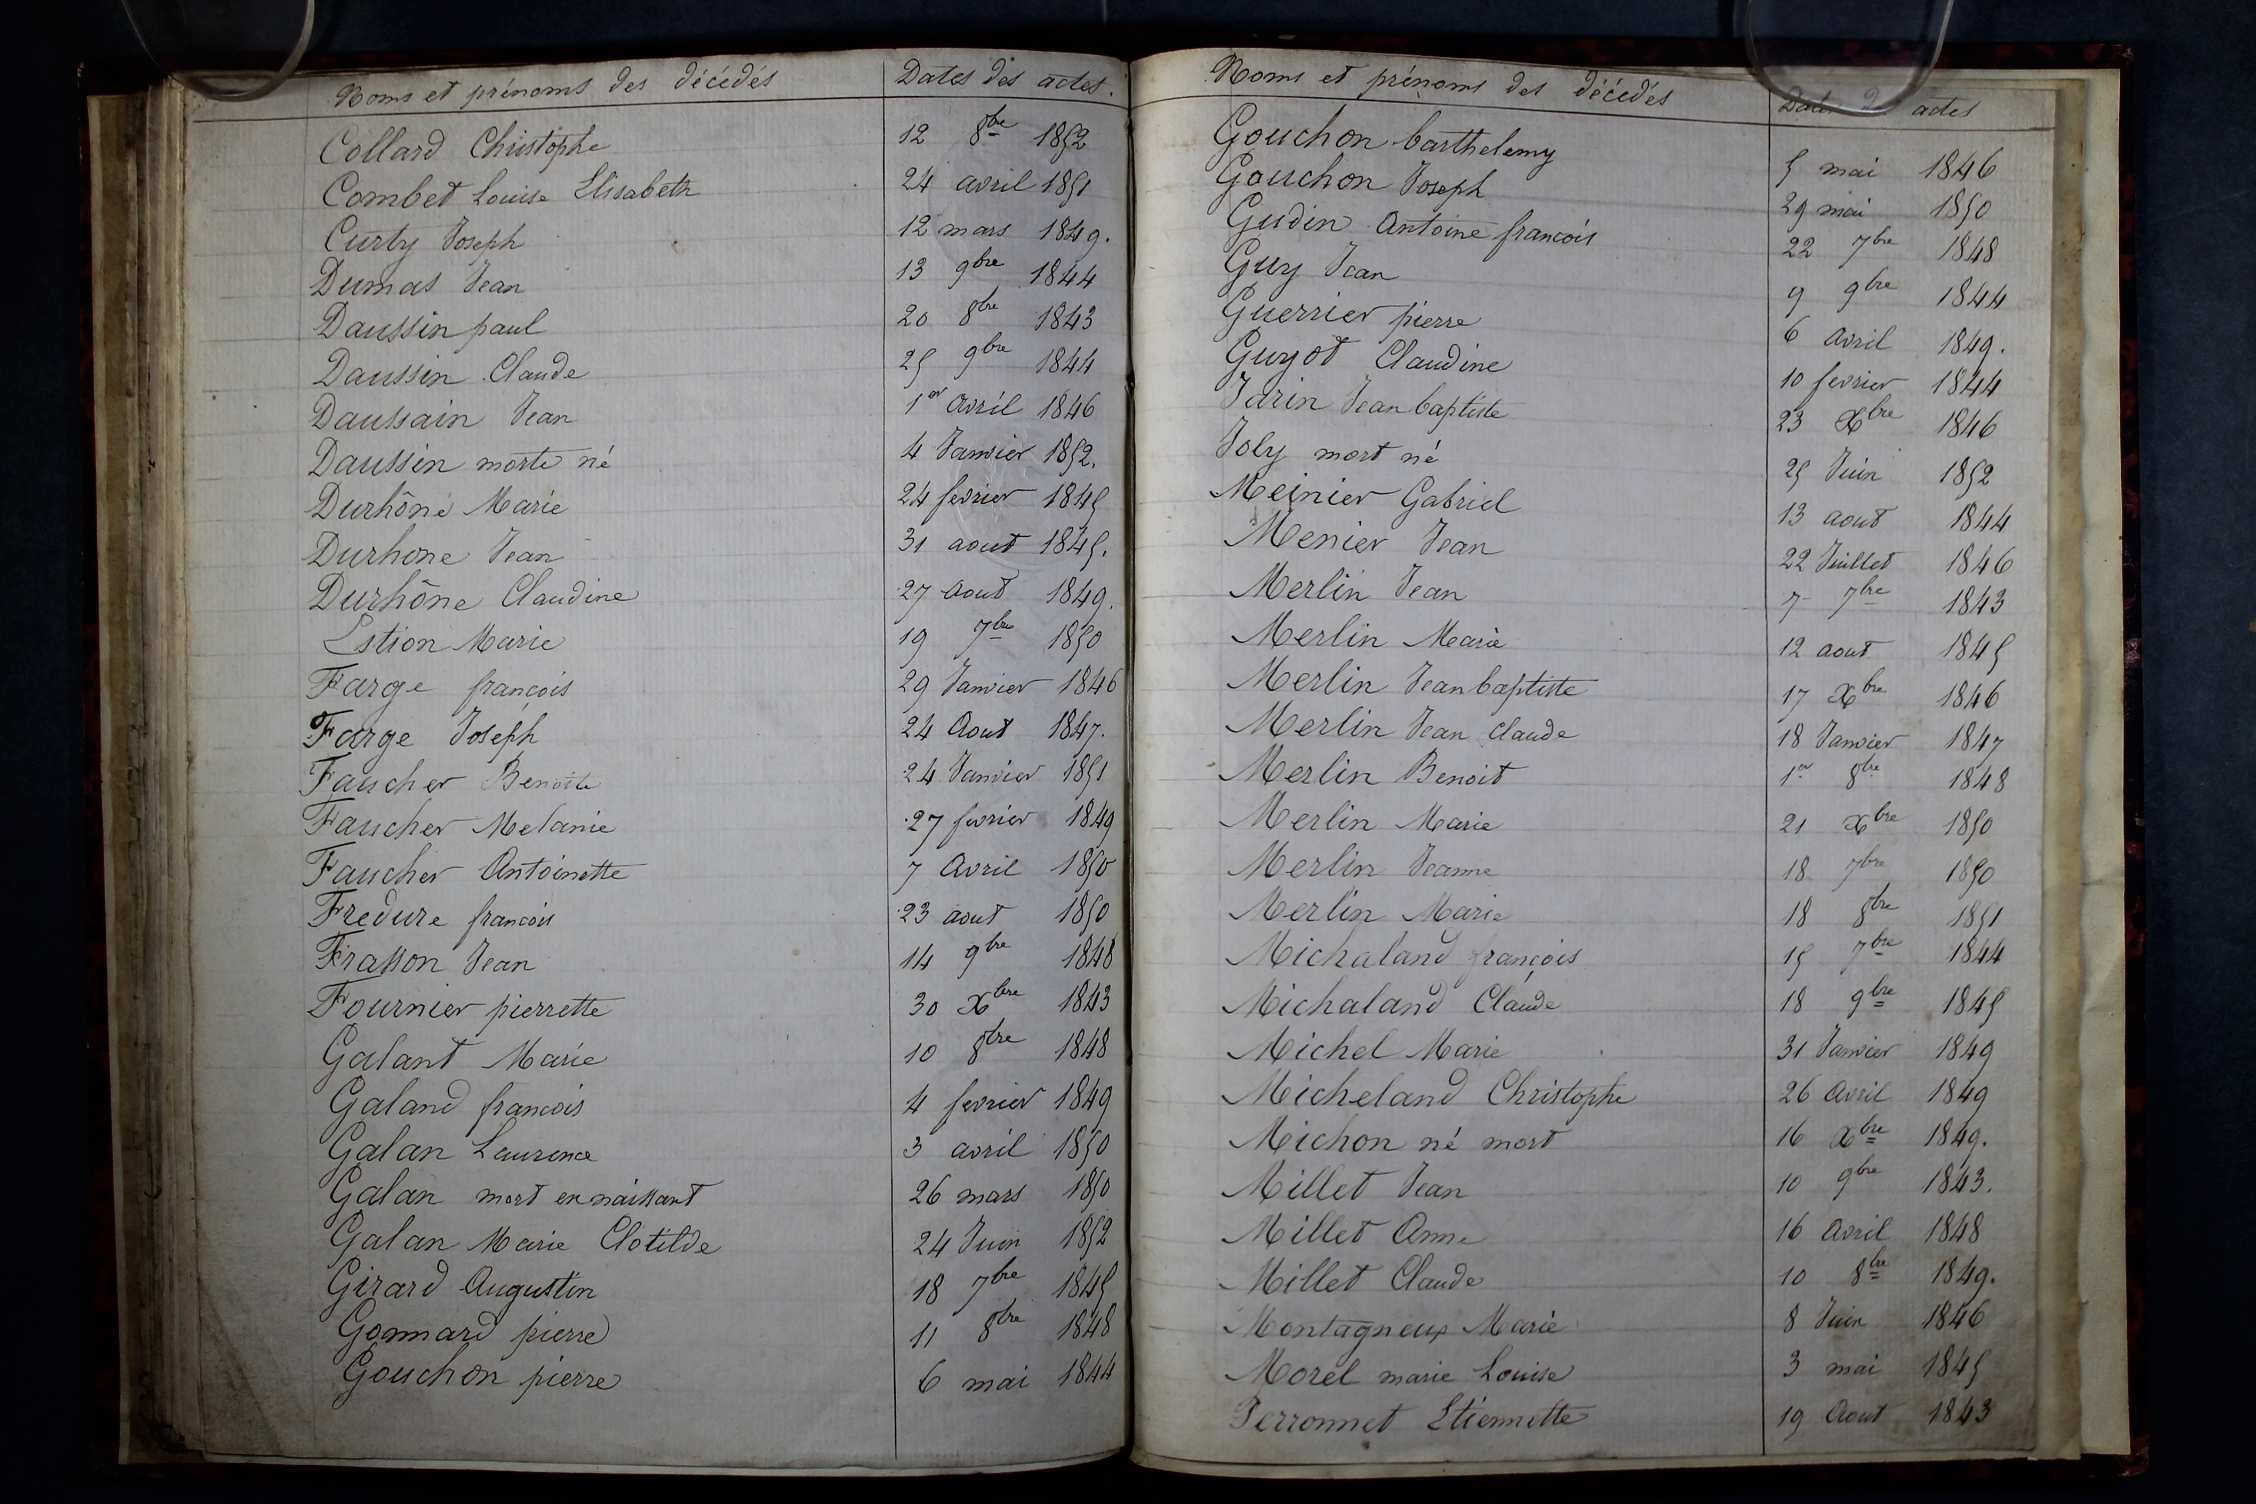 Noms et prénoms des décédés Dates des actes.
Collard Christophe 12 8bre 1852
Combet Louise Elisabeth 24 avril 1851
Curty Joseph 12 mars 1849.
Dumas Jean 13 9bre 1844
Daussin paul 20 8bre 1843
Daussin Claude 25 9bre 1844
Daussain Jean 1er avril 1846
Daussin morte né 4 Janvier 1852.
Durhône Marie 24 fevrier 1845
Durhone Jean 31 aout 1845.
Durhône Claudine 27 aout 1849.
Estion Marie 19 7bre 1850
Farge francois 29 Janvier 1846
Farge Joseph 24 Aout 1847.
Faucher Benoite 24 Janvier 1851
Faucher Melanie 27 fevrier 1849
Faucher Antoinette 7 Avril 1850
Fredure francois 23 aout 1850
Frasson Jean 14 9bre 1848
Fournier pierrette 30 Xbre 1843
Galant Marie 10 8bre 1848
Galand francois 4 fevrier 1849
Galan Laurence 3 avril 1850
Galan mort en naissant 26 mars 1850
Galan Marie Clotilde 24 Juin 1852
Girard Augustin 18 7bre 1845
Gonnard pierre 11 8bre 1848
Gouchon pierre 6 mai 1844
Noms et prénoms des décédés actes
Gouchon barthelemy 5 mai 1846
Gouchon Joseph 29 mai 1850
Gudin Antoine francois 22 7bre 1848
Guy Jean 9 9bre 1844
Guerrier pierre 6 avril 1849.
Guyot Claudine 10 fevrier 1844
Jarin Jean baptiste 23 Xbre 1846
Joly mort né 25 Juin 1852
Meinier Gabriel 13 aout 1844
Menier Jean 22 Juillet 1846
Merlin Jean 7 7bre 1843
Merlin Marie 12 aout 1845
Merlin Jean baptiste 17 Xbre 1846
Merlin Jean claude 18 Janvier 1847
Merlin Benoit 1er 8bre 1848
Merlin Marie 21 Xbre 1850
Merlin Jeanne 18 7bre 1850
Merlin Marie 18 8bre 1851
Michaland françois 15 7bre 1844
Michaland Claude 18 9bre 1845
Michel Marie 31 Janvier 1849
Micheland Christophe 26 avril 1849
Michon né mort 16 Xbre 1849.
Millet Jean 10 9bre 1843.
Millet Anne 16 avril 1848
Millet Claude 10 8bre 1849.
Montagneux Marie 8 Juin 1846
Morel marie Louise 3 mai 1845
Perronnet Etiennette 19 Aout 1843